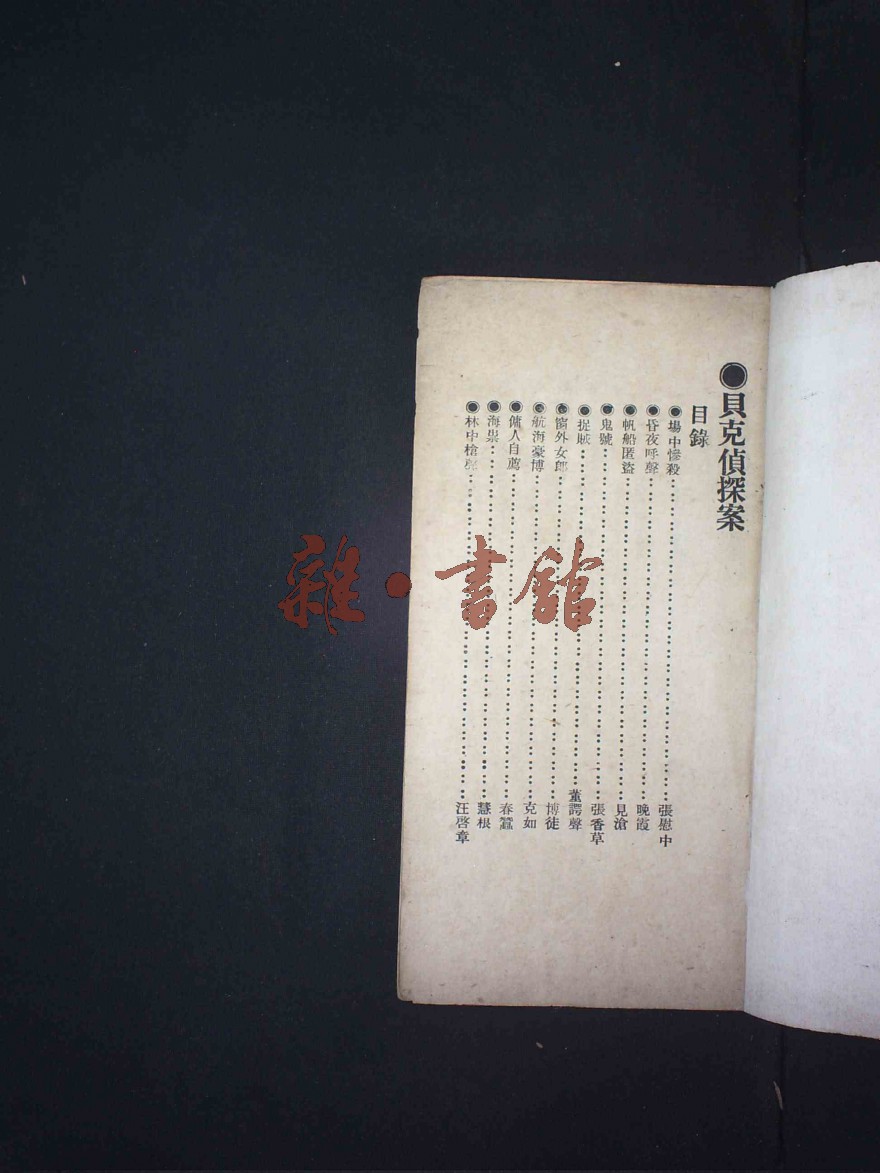 ◉貝克偵探案
目錄
◉場中慘殺……張慰中
◉昏夜呼聲……晚霞
◉帆船匿盜……見滄
◉鬼號……張香草
◉捉賊……董諤聲
◉窗外女郎……博徒
◉航海豪博……克如
◉傭人自薦……春蠶
◉海祟……慧根
◉林中槍聲……汪啓章
雜·書館